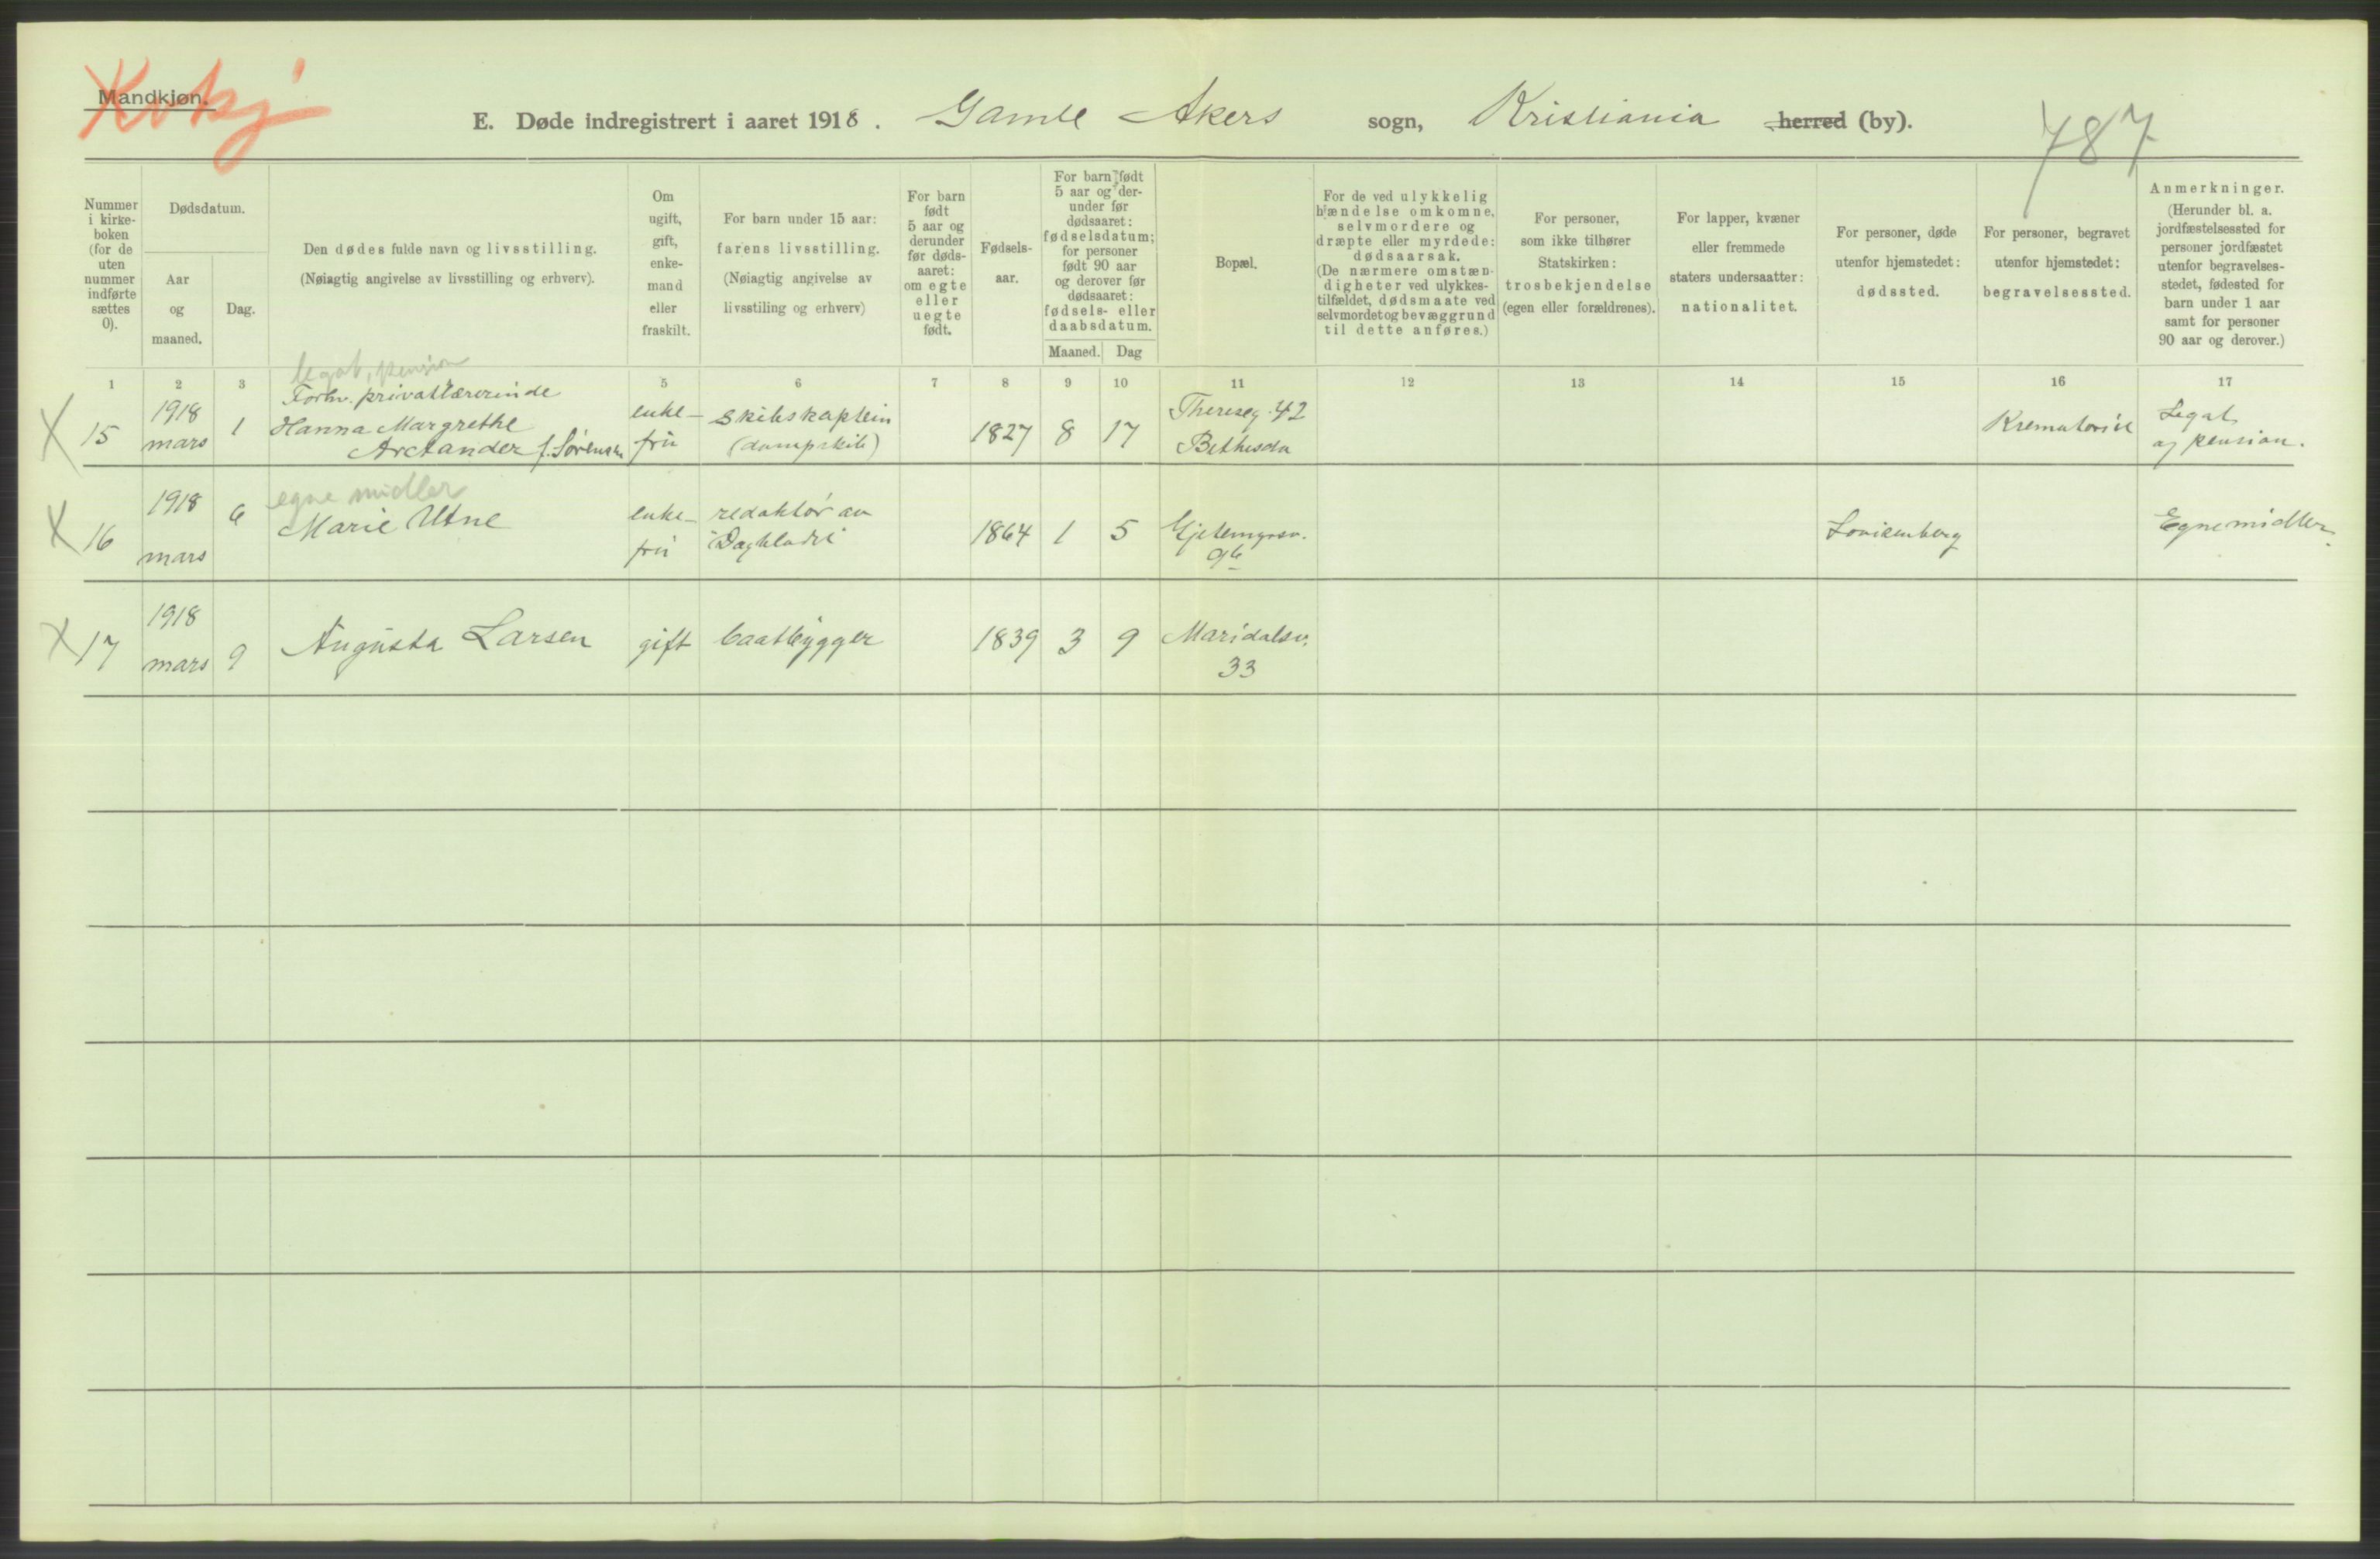 Mandkjøn.
Kvkj
E. Døde indregistrert i aaret 1918. Gamle Akers sogn, Kristiania herred (by).
787
Nummer i kirke-boken (for de uten nummer indførte sættes 0).
Dødsdatum.
Aar og maaned.
Dag.
Den dødes fulde navn og livsstilling.
(Nøiagtig angivelse av livsstilling og erhverv).
Om ugift, gift, enke-mand eller fraskilt.
For barn under 15 aar: farens livsstilling.
(Nøiagtig angivelse av livsstiling og erhverv)
For barn født 5 aar og derunder før døds-aaret: om egte eller uegte født.
Fødsels-aar.
For barn født 5 aar og der-under før dødsaaret: fødselsdatum; for personer født 90 aar og derover før dødsaaret: fødsels- eller daabsdatum.
Maaned. Dag
Bopæl.
For de ved ulykkelig hændelse omkomne, selvmordere og dræpte eller myrdede: dødsaarsak.
(De nærmere omstæn-digheter ved ulykkes-tilfældet, dødsmaate ved selvmordet og bevæggrund til dette anføres.)
For personer, som ikke tilhører Statskirken: trosbekjendelse (egen eller forældrenes).
For lapper, kvæner eller fremmede staters undersaatter: nationalitet.
For personer, døde utenfor hjemstedet: dødssted.
For personer, begravet utenfor hjemstedet: begravelsessted.
Anmerkninger.
(Herunder bl. a. jordfæstelsessted for personer jordfæstet utenfor begravelses-stedet, fødested for barn under 1 aar samt for personer 90 aar og derover.)
1 2 3 5 6 7 8 9 10 11 12 13 14 15 16 17
legat, pension
Forhv. privatlærerinde
X 15 1918 mars 1 Hanna Margrethe Arctander f. Sørensen enke-fru skibskaptein (dampskib) 1827 8 17 Thereseg. 42 Bethesda Krematoriet Legat og pension.
egne midler
X 16 1918 mars 6 Marie Utne enke-fru redaktør av "Dagbladet" 1864 1 5 Gjetemyrsv. 96 Lovisenberg Egne midler.
X 17 1918 mars 9 Augusta Larsen gift baatbygger 1839 3 9 Maridalsv. 33